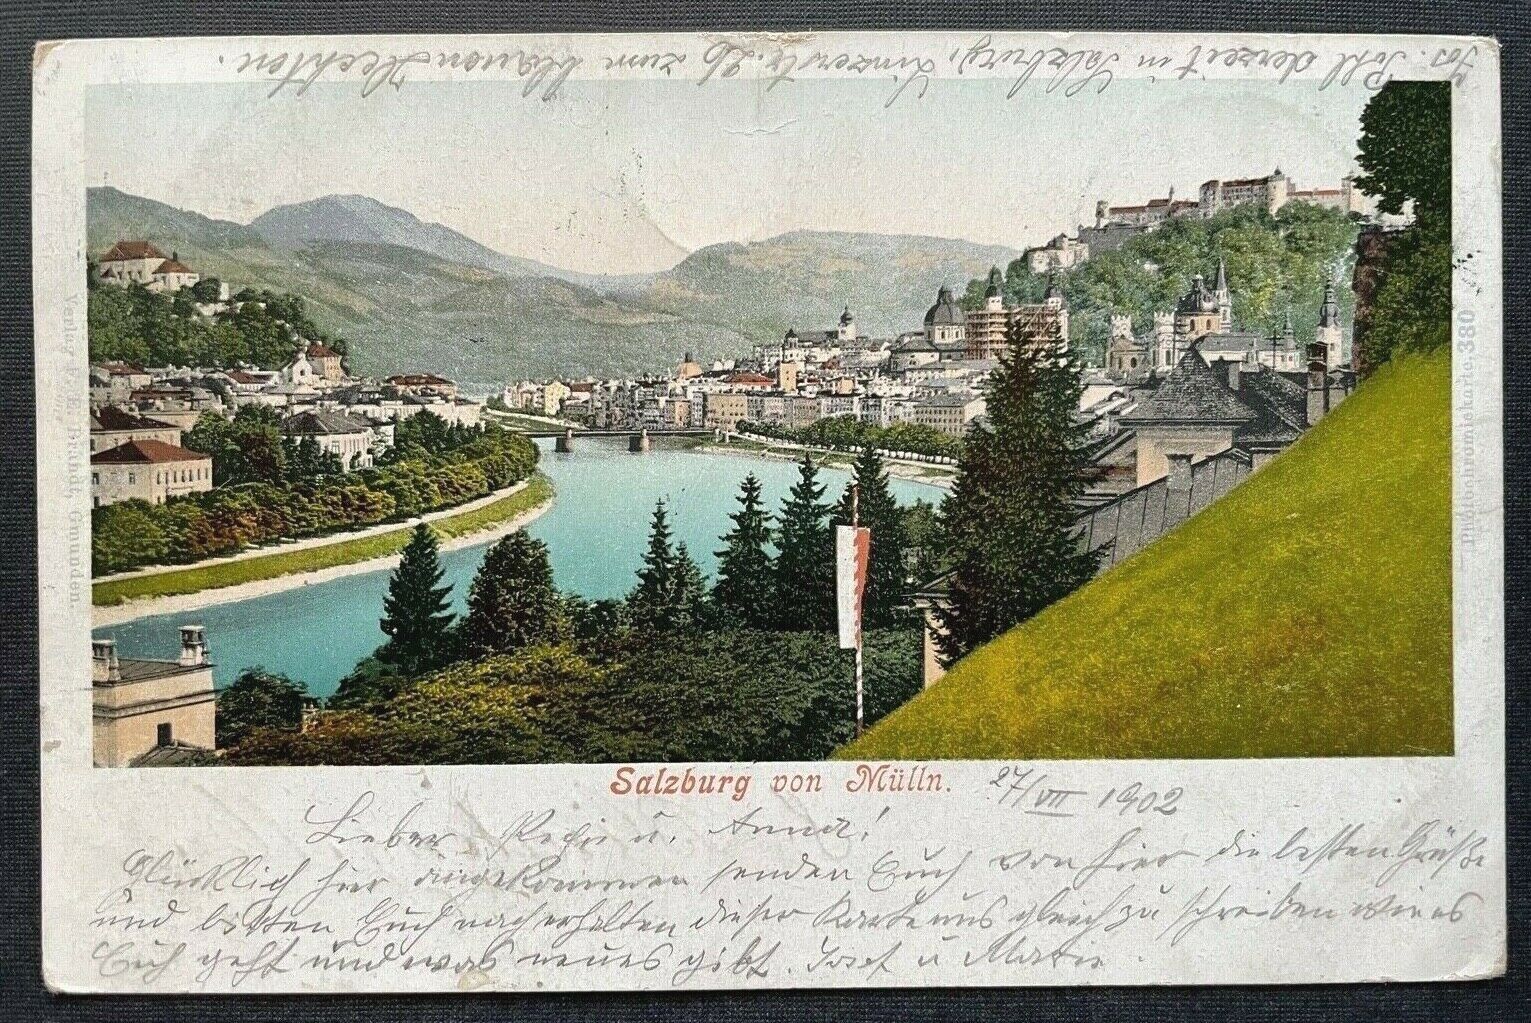 Jos. Pohl derzeit in Salzburg, Linzerstr. 26 zum
Verlag v. E. Brandt, Gmunden.
Photochromiekarte 380
Salzburg von Mülln. 27/VII 1902
Lieber u. Anna!
Glücklich hier angekommen senden Euch von hier die besten Grüße
und bitten Euch nach erhalten dieser Karte uns gleich zu schreiben wie es
Euch geht und was neues gibt. Josef u Marie.